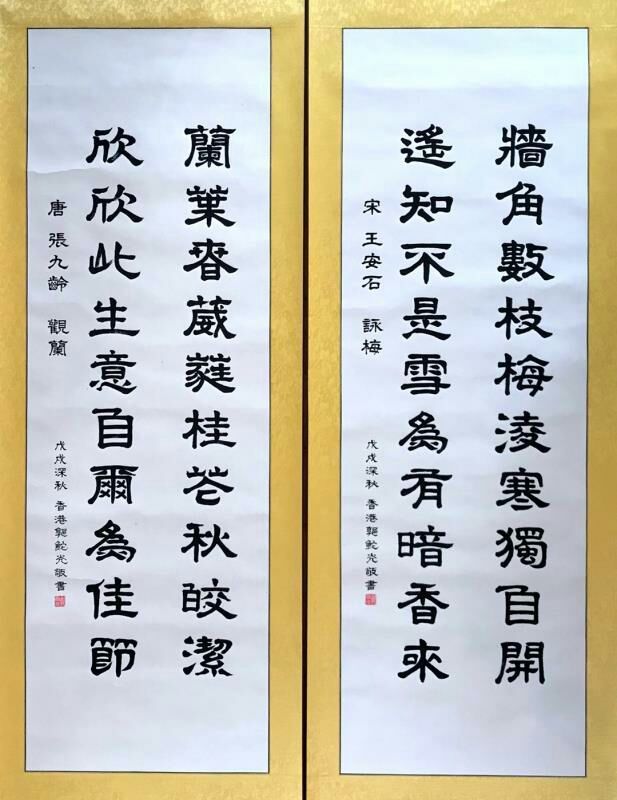 牆角數枝梅淩寒獨自開
遙知不是雪為有暗香來
宋 王安石 詠梅
戊戌深秋 香港鄭鉈光敬書
蘭葉春葳蕤桂花秋皎潔
欣欣此生意自爾為佳節
唐 張九齡 觀蘭
戊戌深秋 香港鄭鉈光敬書